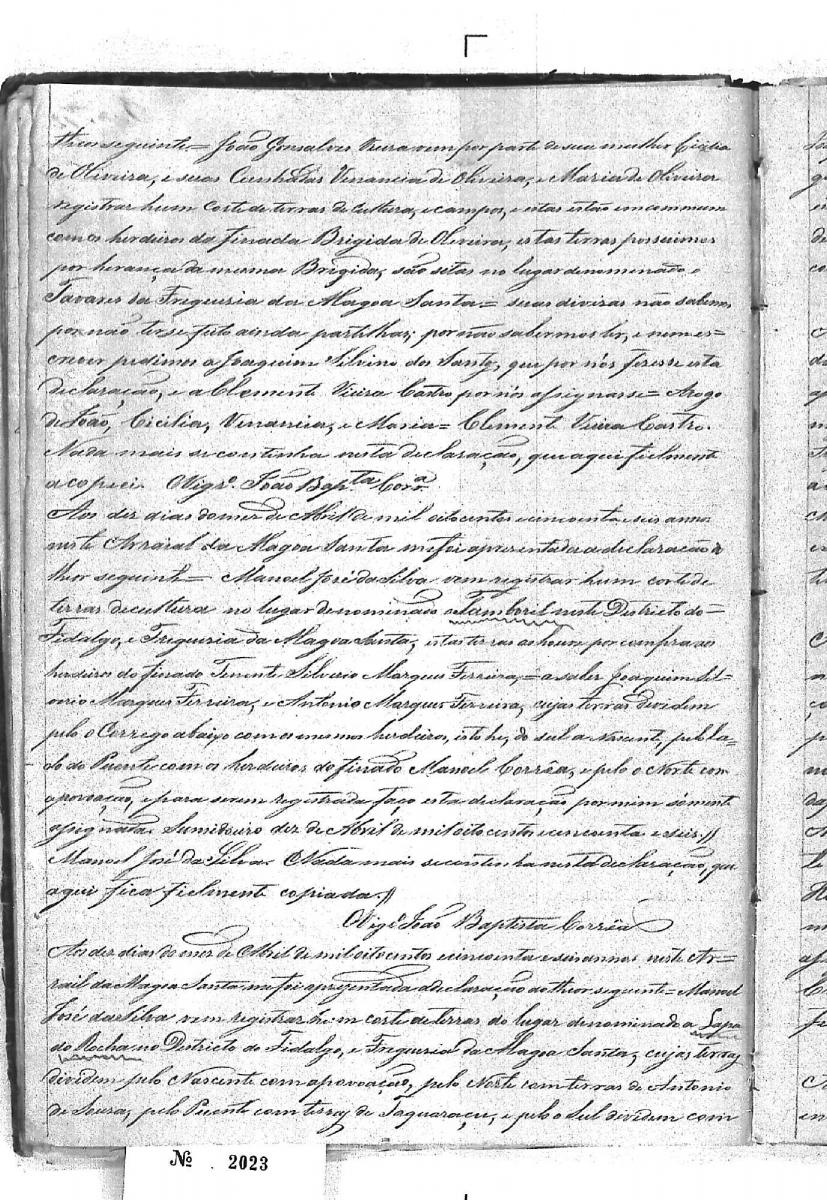 theor seguinte = João Gonsalves Vieira vem por parte de sua mulher Cicilia
de Oliveira, e suas Cunhadas Venancia de Oliveira, e Maria de Oliveira
registrar hum corte de terras de cultura, e campos, e estas estão em commum
com os herdeiros da finada Brigida de Oliveira, estas terras possuimos
por herança da mesma Brigida, são sitas no lugar denominado o
Tavares da Freguesia da Alagoa Santa = suas divizas não sabemos
por não ter se feito ainda partilhas; por não sabermos ler, e nem es=
crever pedimos a Joaquim Silvino dos Santos, que por nós fizesse esta
declaração, e a Clemente Vieira Castro por nós assignasse = Arogo
de João, Cicilia, Venancia, e Maria = Clemente Vieira Castro.
Nada mais se continha nesta declaração, que aqui fielmente
a copiei. O Vigro. João Bapta. Corra.
Aos dez dias do mez de Abril de mil oito centos e cincoenta e seis annos
neste Arraial da Alagoa Santa me foi apresentada a declaração do
theor seguinte = Manoel José da Silva vem registrar hum corte de
terras de cultura no lugar denominado o Tamboril neste Districto do =
Fidalgo, e Freguesia da Alagoa Santa, estas terras as houve por compra aos
herdeiros do finado Tenente Silverio Marques Ferreira, = a saber Joaquim Sil=
verio Marques Ferreira, e Antonio Marques Ferreira, cujas terras dividem
pelo o Corrego abaixo com os mesmos herdeiros, isto he, do sul a Nascente, pelo la=
do do Puente com os herdeiros do finado Manoel Corrêa, e pelo o Norte com
a povoação, e para serem registrada faço esta declaração por mim sómente
assignada. Sumidouro dez de Abril de mil oito centos e cincoenta e seis.//
Manoel José da Silva. Nada mais se continha nesta declaração, que
aqui fica fielmente copiada.//
O Vigro. João Baptista Corrêa
Aos dez dias do mez de Abril de mil oito centos e cincoenta e seis annos neste Ar=
raial da Alagoa Santa me foi aprezentada a declaração do theor seguinte = Manoel
José da Silva vem registrar hum corte de terras do lugar denominado a Lapa
do Rocha no Districto do Fidalgo, e Freguesia da Alagoa Santa, cujas terras
dividem pelo Nascente com a povoação, pelo Norte com terras de Antonio
de Souza, pelo Puente com terras de Taquaraçu, e pelo o Sul dividem com
No. 2023